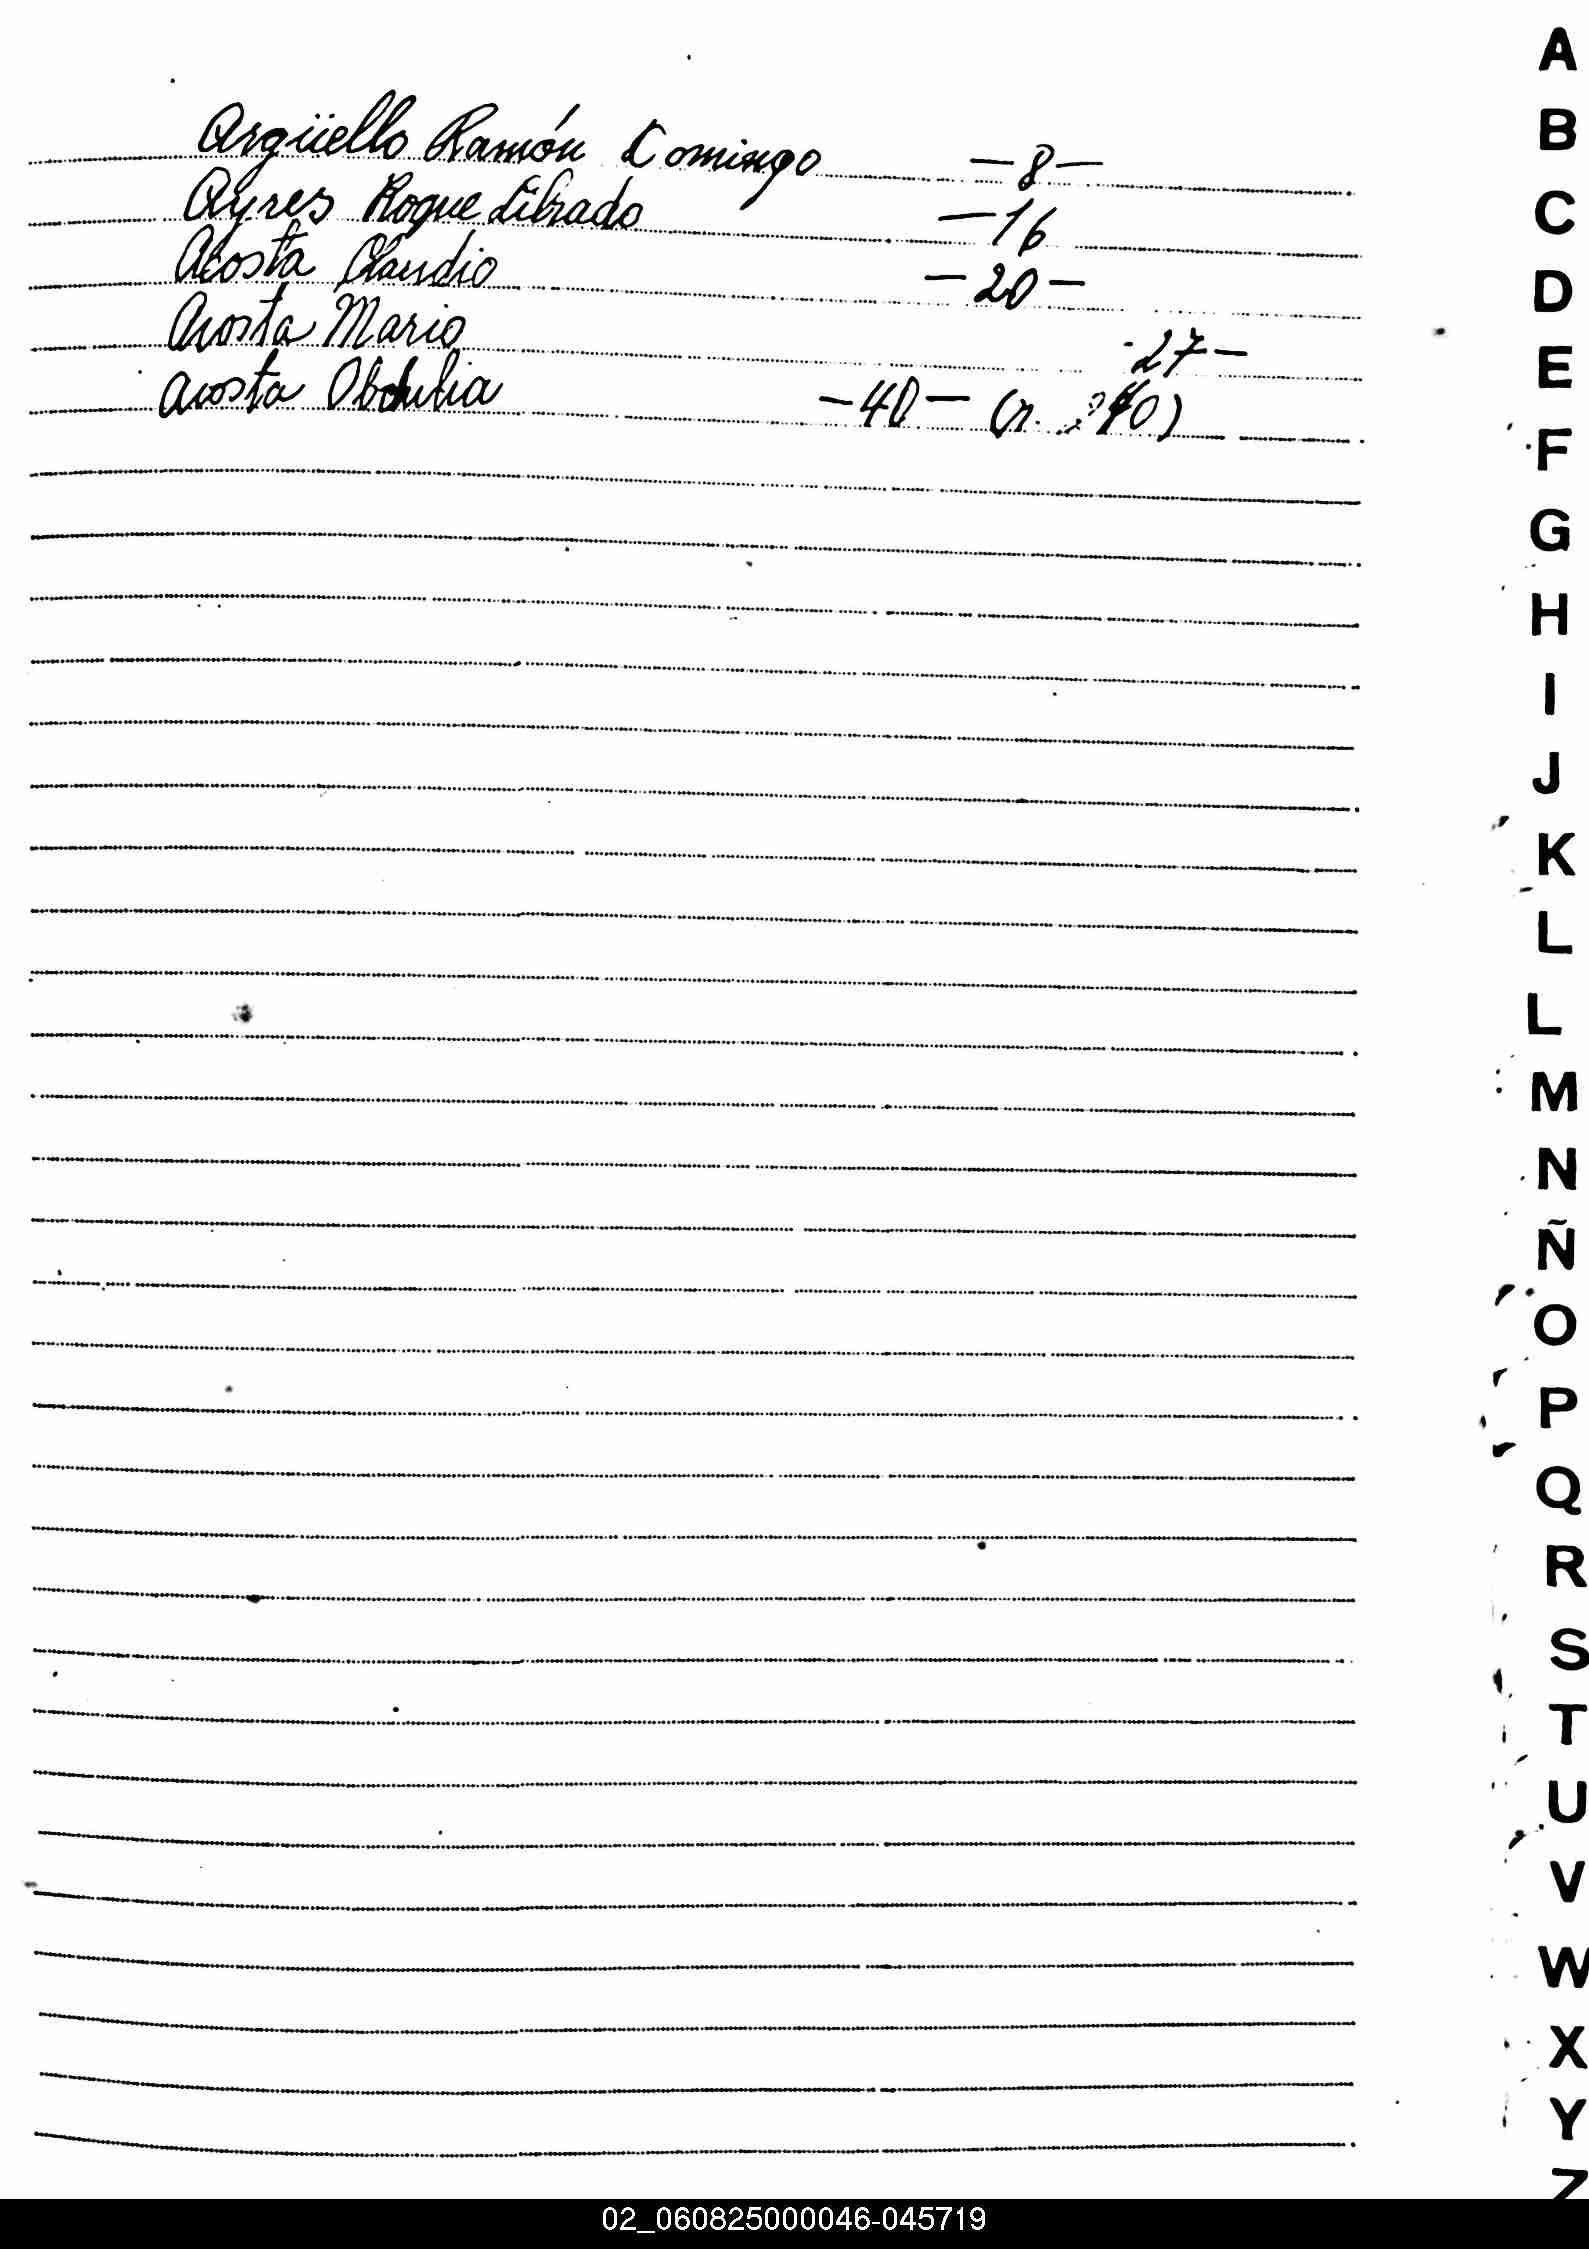 Argüello Ramón Domingo —8—
Ayres Roque Librado —16
Acosta Claudio —20—
Acosta Mario -27—
Acosta Obdulia —40— (n.
A
B
C
D
E
F
G
H
I
J
K
L
L
M
N
Ñ
O
P
Q
R
S
T
U
V
W
X
Y
Z
02_060825000046-045719